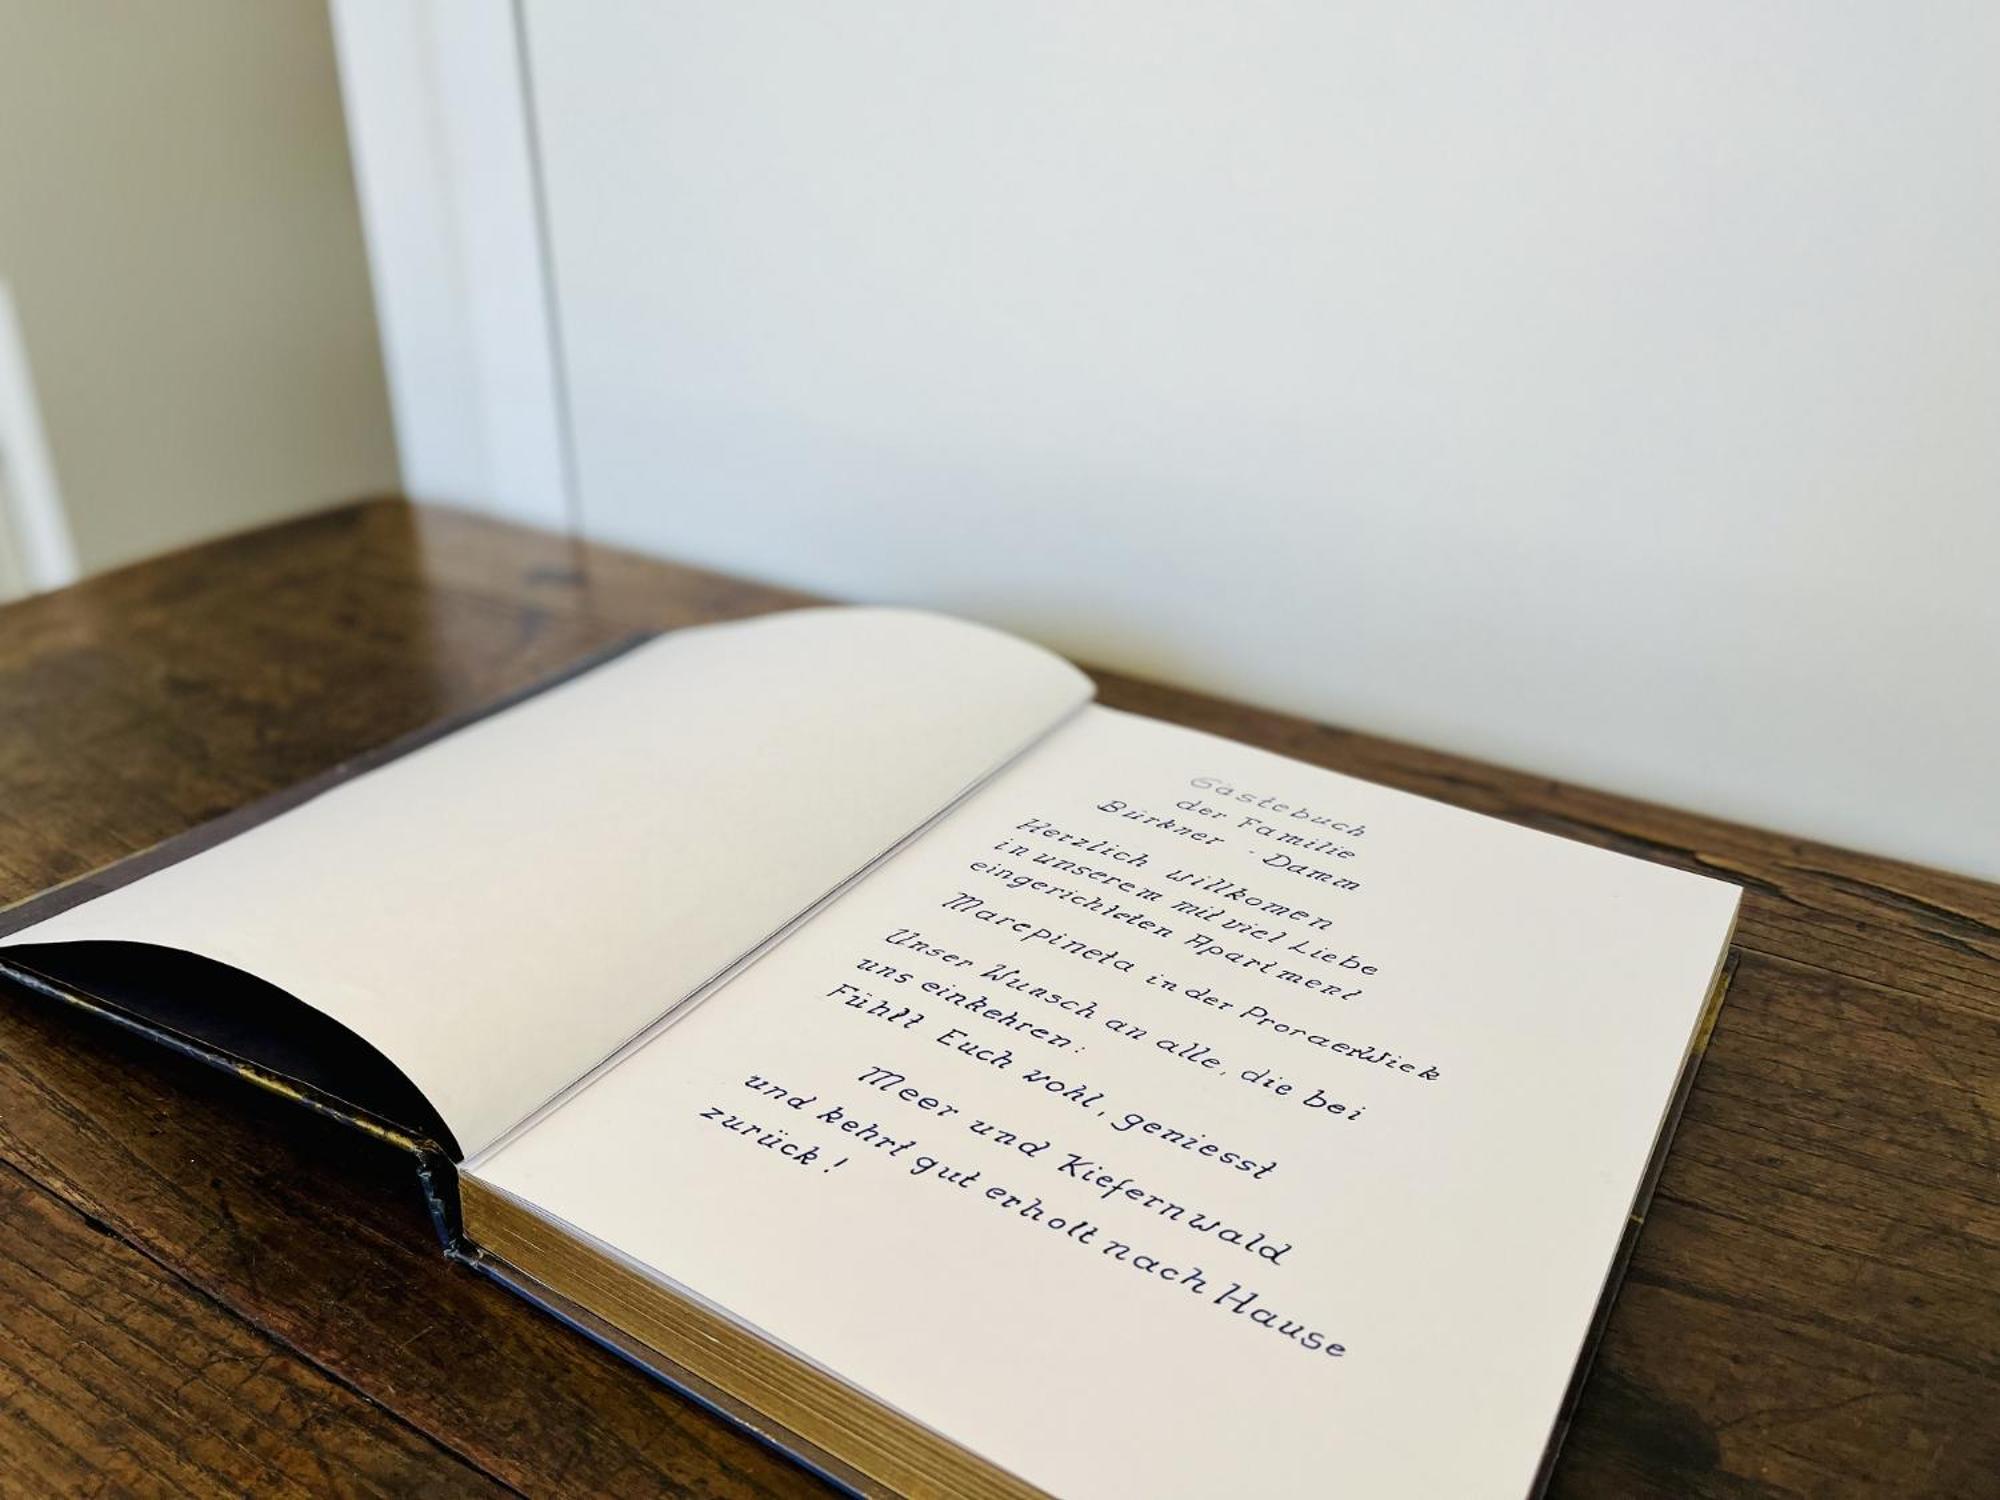 Gästebuch
der Familie
Bürkner - Damm
Herzlich willkomen
in unserem mit viel Liebe
eingerichteten Apartment
Marepineta in der ProraerWiek
Unser Wunsch an alle, die bei
uns einkehren:
Fühlt Euch wohl, geniesst
Meer und Kiefernwald
und kehrt gut erholt nach Hause
zurück!